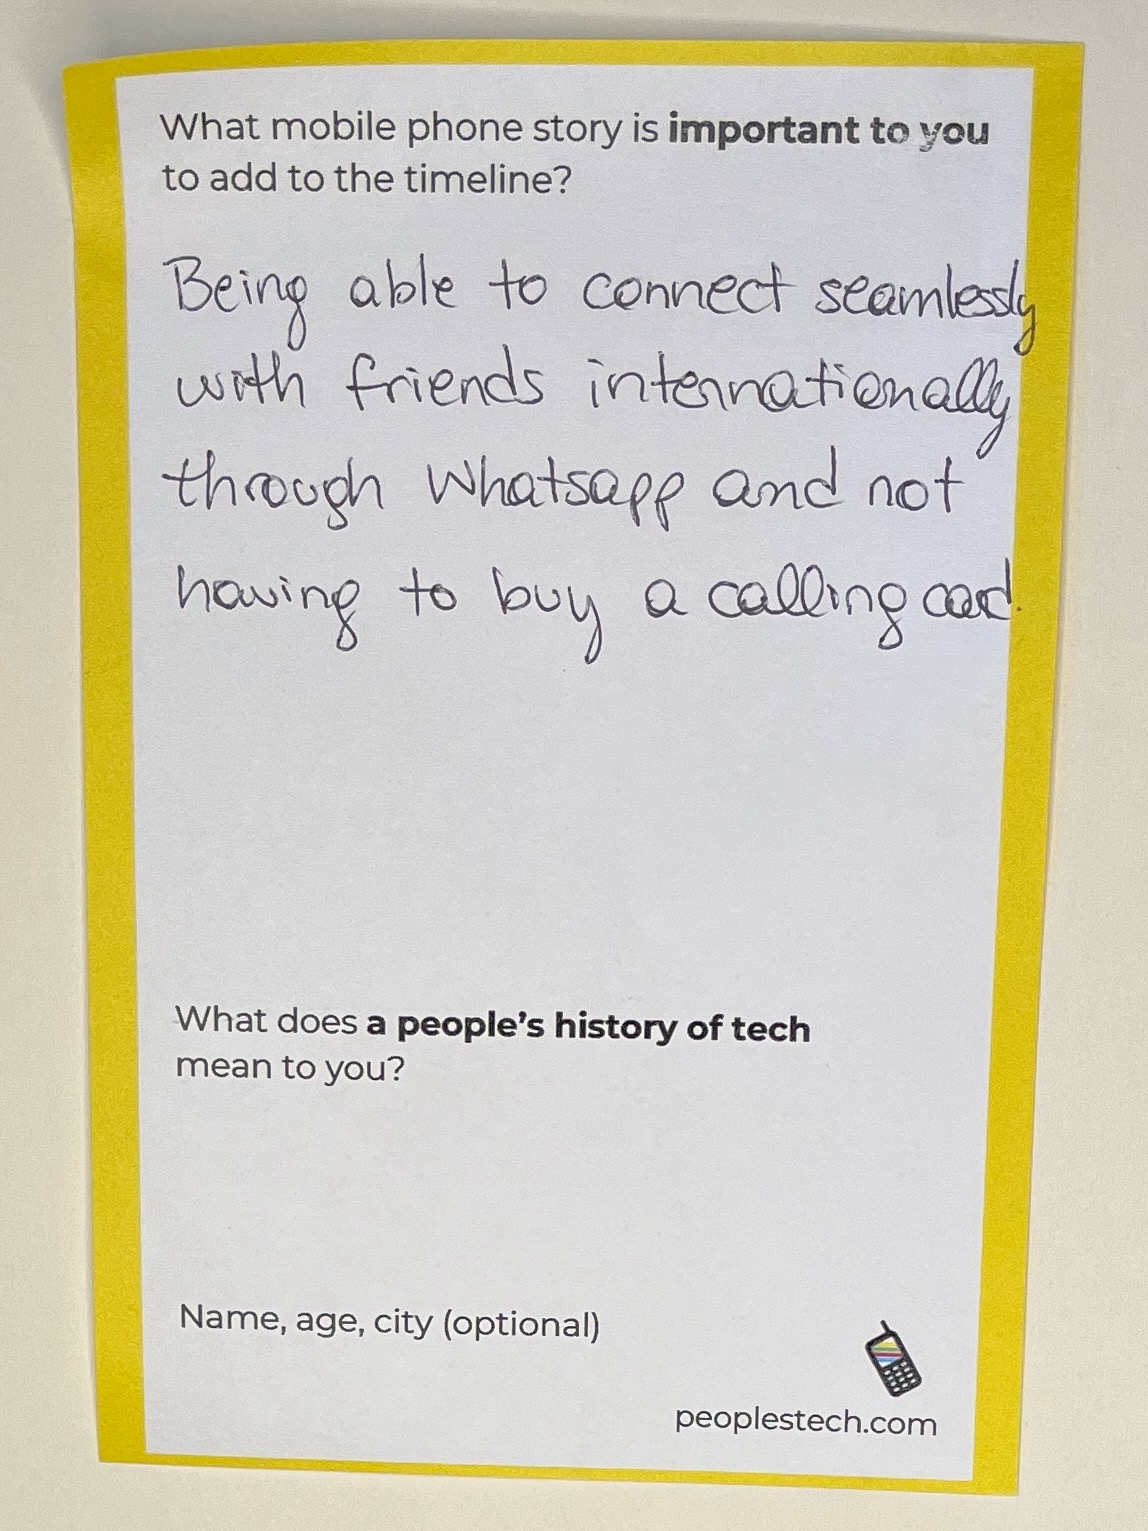 What mobile phone story is important to you
to add to the timeline?
Being able to connect seamlessly
with friends internationally
through Whatsapp and not
having to buy a calling card.
What does a people's history of tech
mean to you?
Name, age, city (optional)
peoplestech.com